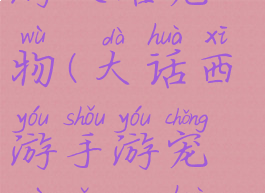 wù dà huà xī
物(大话西
yóu shǒu yóu chǒng
游手游宠